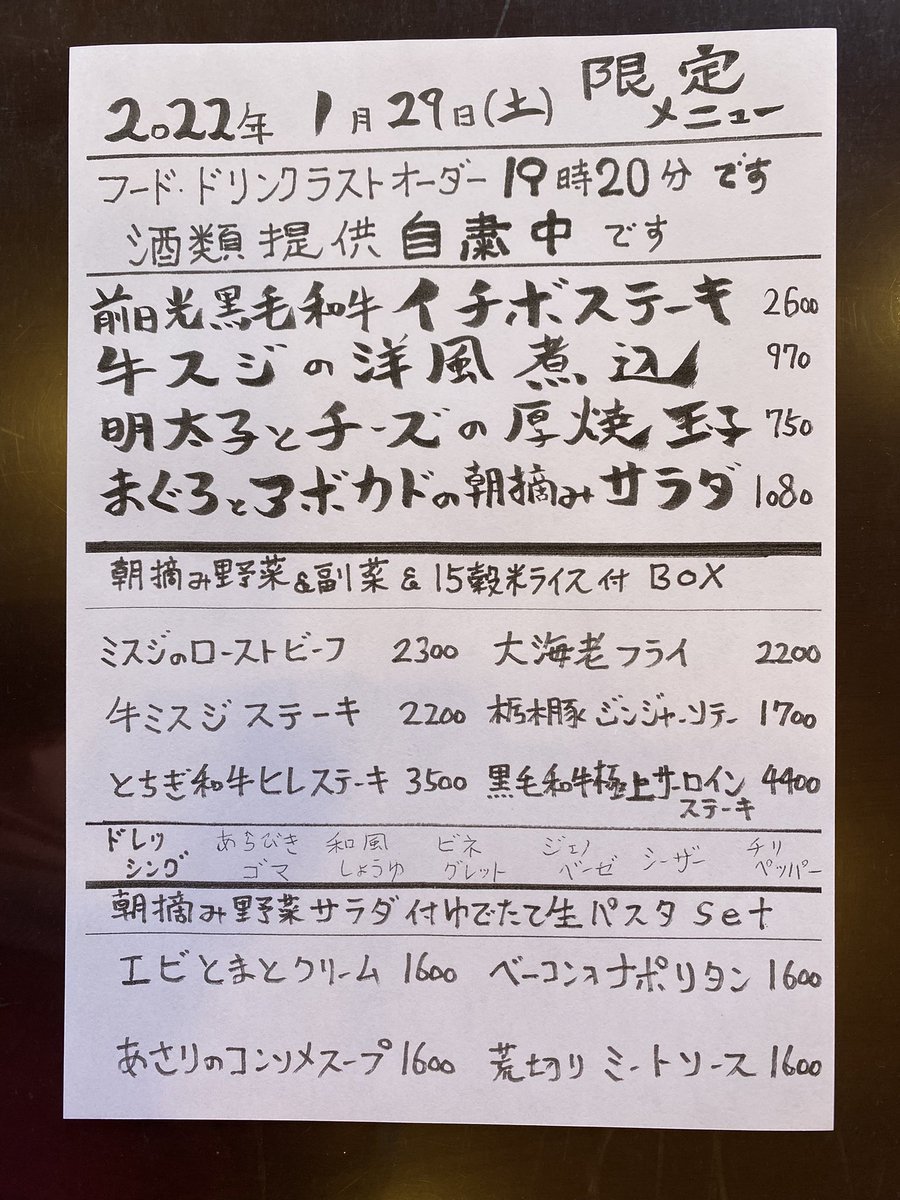 2022年 1月29日(土) 限定メニュー
フード・ドリンクラストオーダー 19時20分 です
酒類提供 自粛中 です
前日光黒毛和牛 イチボステーキ 2600
牛スジの洋風煮込 970
明太子とチーズの厚焼玉子 750
まぐろとアボカドの朝摘みサラダ 1080
朝摘み野菜&副菜&15穀米ライス付 BOX
ミスジのローストビーフ 2300 大海老フライ 2200
牛ミスジステーキ 2200 栃木豚ジンジャーソテー 1700
とちぎ和牛ヒレステーキ 3500 黒毛和牛極上サーロインステーキ 4400
ドレッシング あらびきゴマ 和風しょうゆ ビネグレット ジェノベーゼ シーザー チリペッパー
朝摘み野菜サラダ付ゆでたて生パスタ Set
エビとまとクリーム 1600 ベーコンオナポリタン 1600
あさりのコンソメスープ 1600 荒切りミートソース 1600